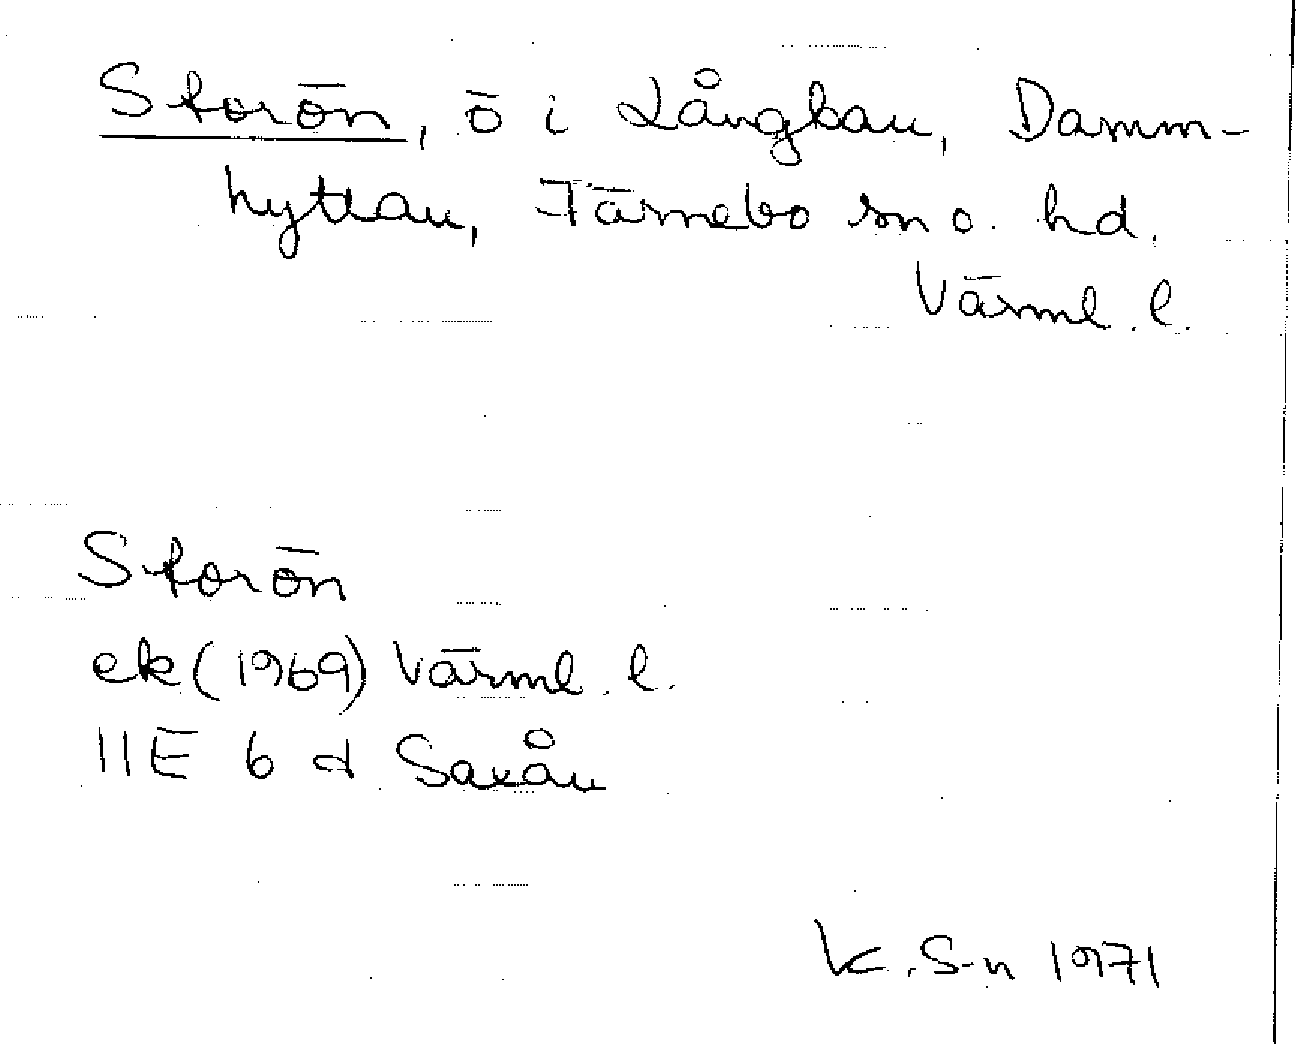 Storön, ö i Långban, Damm-
hyttan, Färnebo sn o. hd,
Värml. l.
Storön
ek (1969) Värml. l.
11E 6 d Saxån
K. S-n 1971